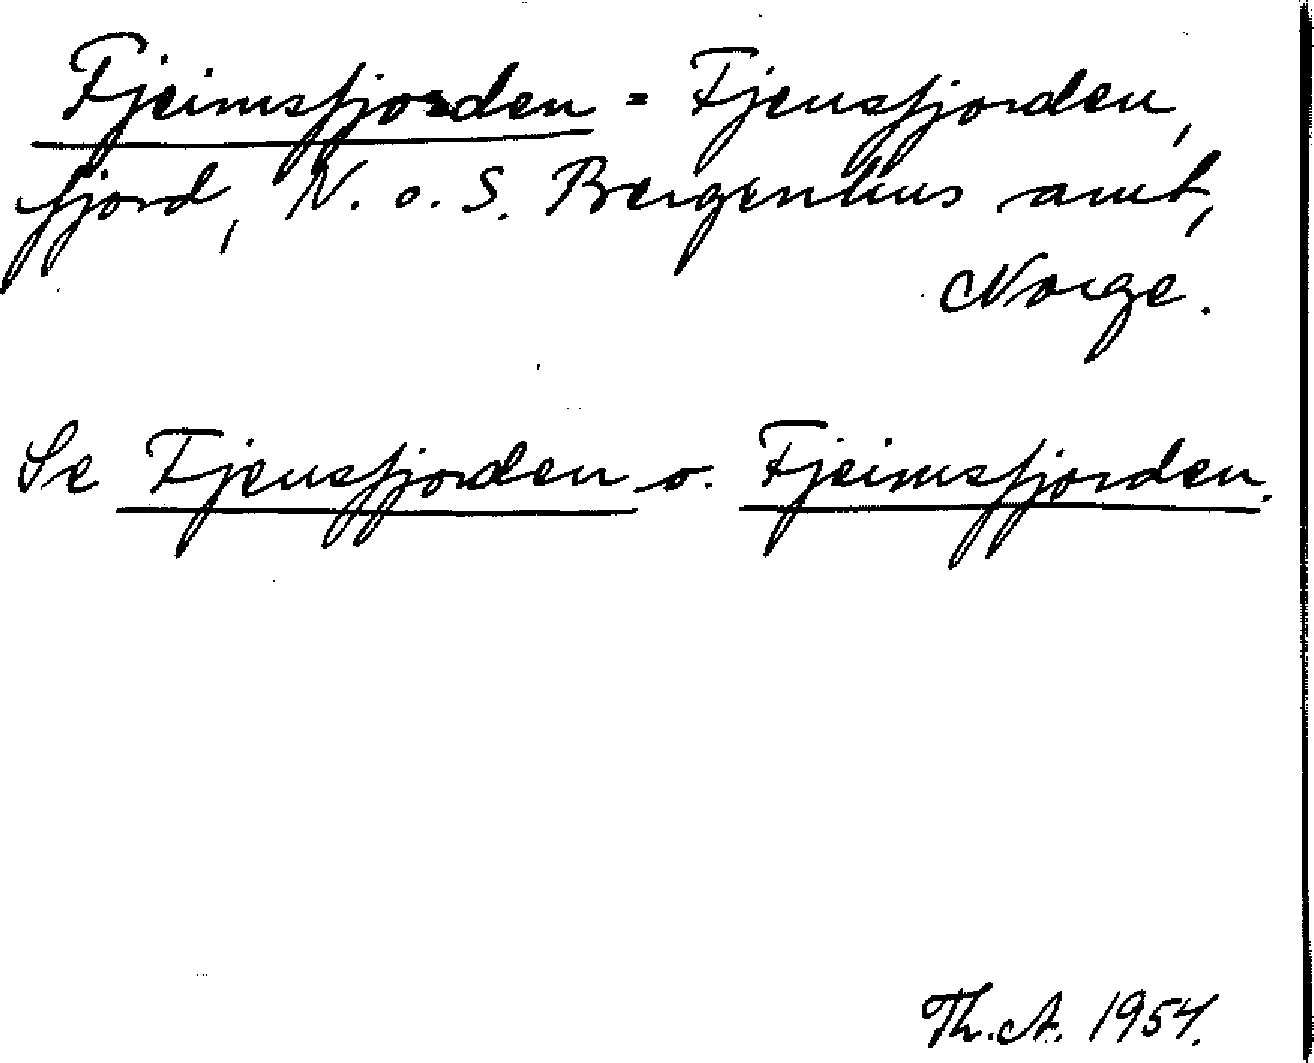 Fjeimsfjorden = Fjensfjorden,
fjord, N. o. S. Bergenhus amt,
Norge.
Se Fjensfjorden o. Fjeimsfjorden.
Th. A. 1954.